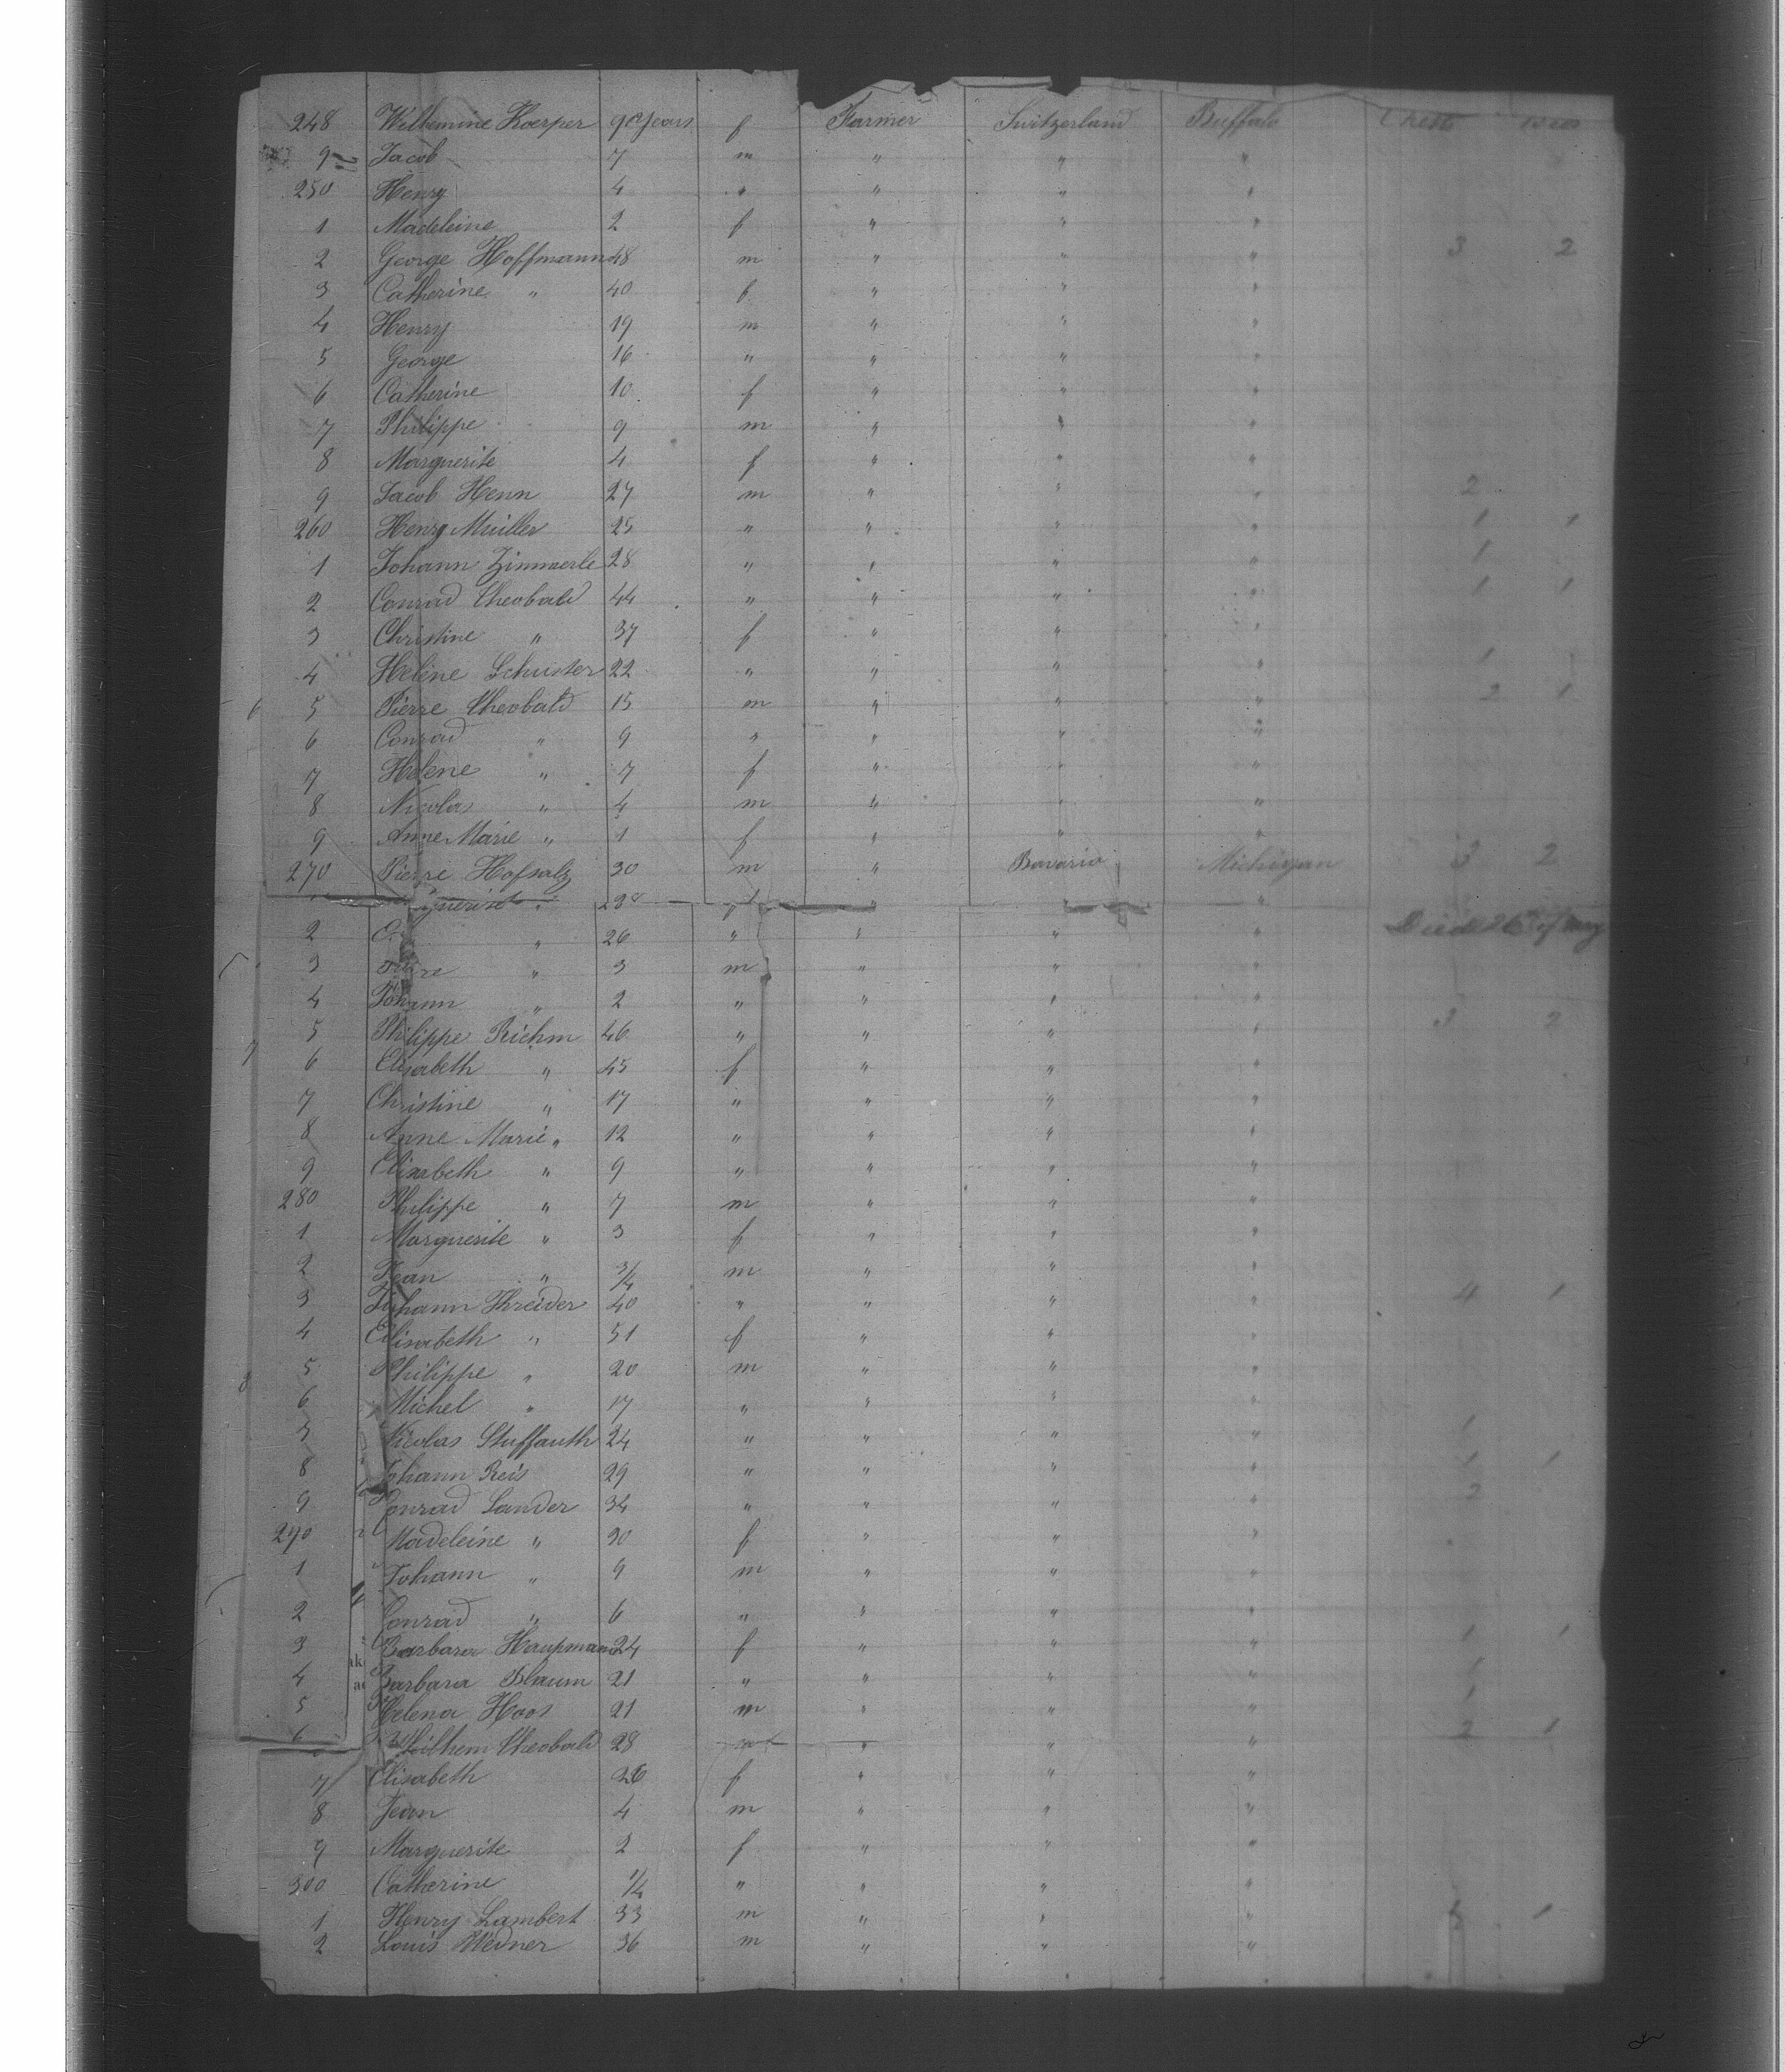 248 Wilhemine Koerper 9 Years f Farmer Switzerland Buffalo Chest
9 Jacob 7 m " " "
250 Henry 4 " " " "
1 Madeleine 2 f " " "
2 George Hoffmann 48 m " " " 3 2
3 Catherine " 40 f " " "
4 Henry 19 m " " "
5 George 16 " " " "
6 Catherine 10 f " " "
7 Philippe 9 m " " "
8 Marguerite 4 f " " "
9 Jacob Henn 27 m " " " 2
260 Henry Muller 25 " " " " 1 1
1 Johann Zimmerle 28 " " " " 1
2 Conrad Theobald 44 " " " " 1 1
3 Christine " 37 f " " "
4 Helene Schuster 22 " " " " 1
6 5 Pierre Theobald 15 m " " " 2 1
6 Conrad " 9 " " " "
7 Helene " 7 f " " "
8 Nicolas " 4 m " " "
9 Anne Marie " 1 f " " "
270 Pierre Hofsalz 30 m " Bavaria Michigan 3 2
" 28 " " " "
2 " 26 " " " " Died 26 of May
3 " 3 m " " "
4 Johann " 2 " " " "
5 Philippe Riehm 46 " " " " 3 2
7 6 Elisabeth " 45 f " " "
7 Christine " 17 " " " "
8 Anne Marie " 12 " " " "
9 Elisabeth " 9 " " " "
280 Philippe " 7 m " " "
1 Marguerite " 3 f " " "
2 Jean " 3/4 m " " "
3 Johann Threider 40 " " " " 4 1
4 Elisabeth " 51 f " " "
8 5 Philippe " 20 m " " "
6 Michel " 17 " " " "
7 Nicolas Stuffauth 24 " " " " 1
8 Johann Reis 29 " " " " 1 1
9 Conrad Sander 34 " " " " 2
290 Madeleine " 30 f " " "
1 Johann " 9 m " " "
2 Conrad " 6 " " " "
3 Barbara Haupmann 24 f " " " 1 1
4 Barbara Blaum 21 " " " " 1
5 Helena Hoos 21 m " " " 1
6 Wilhem Theobald 28 m " " " 2 1
7 Elisabeth 26 f " " "
8 Jean 4 m " " "
9 Marguerite 2 f " " "
300 Catherine 1/4 " " " "
1 Henry Lambert 33 m " " " 3 1
2 Louis Wedner 36 m " " "